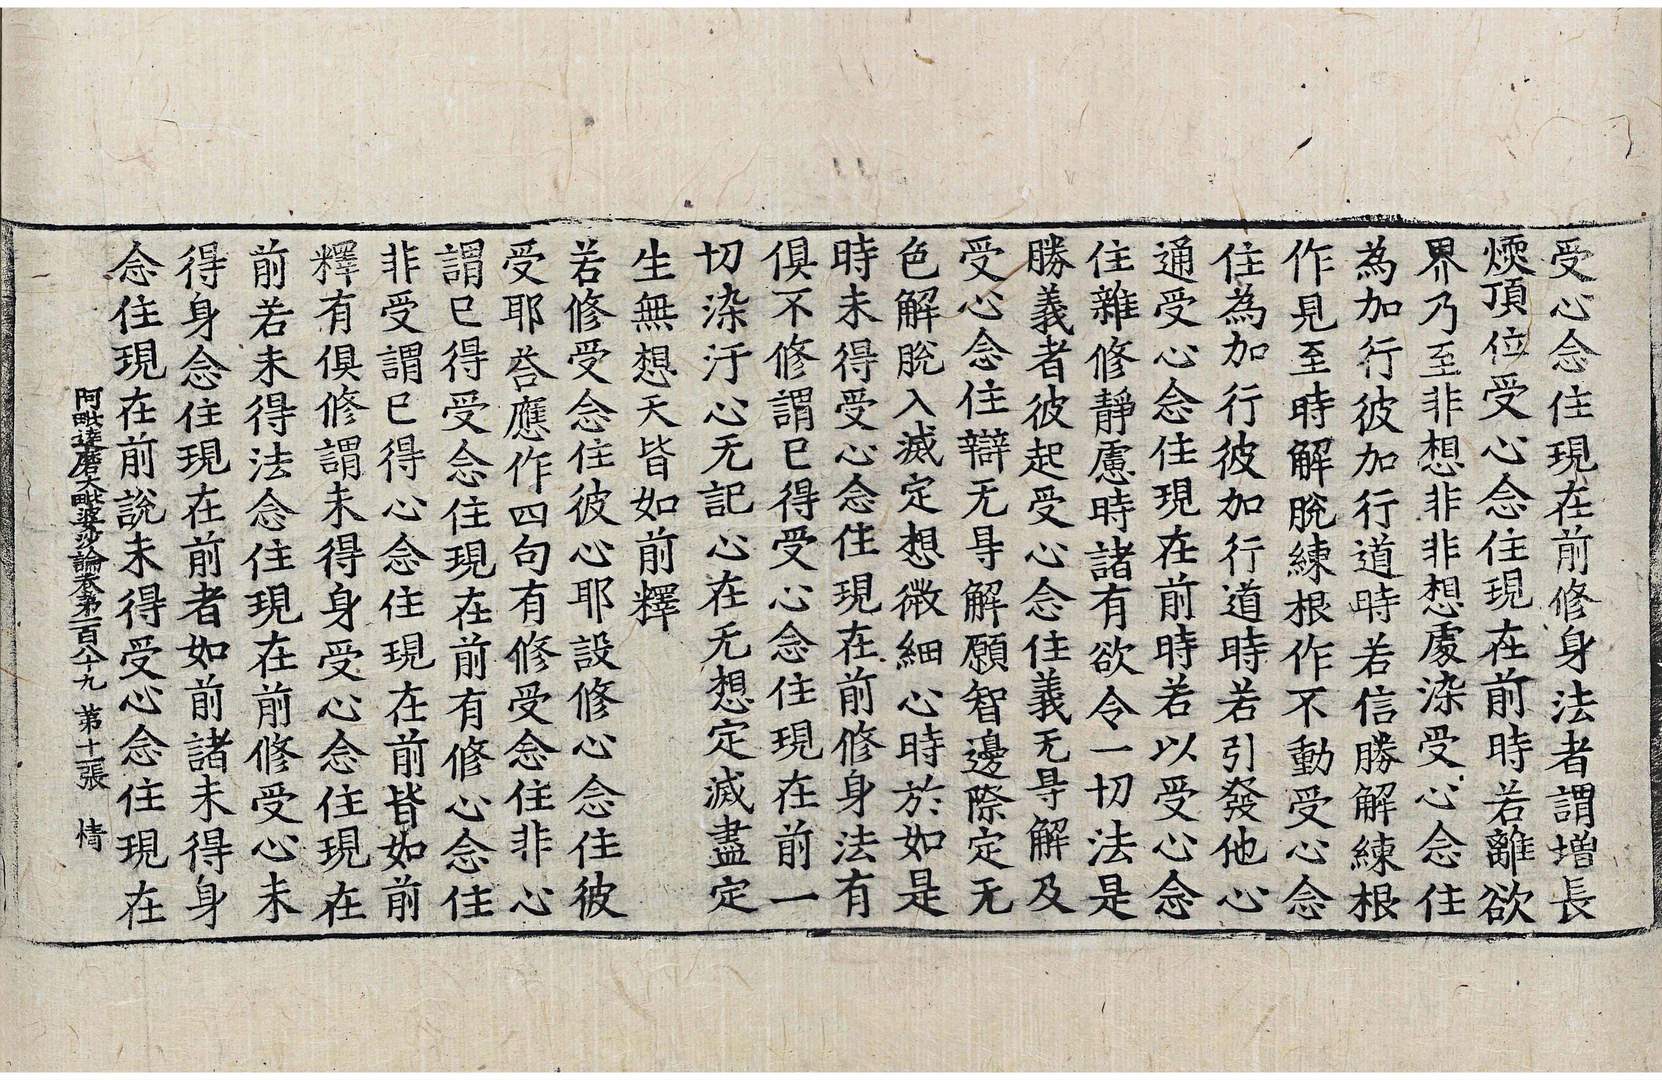 受心念住現在前修身法者謂增長
煗頂位受心念住現在前時若離欲
界乃至非想非非想處染受心念住
為加行彼加行道時若信勝解練根
作見至時解脫練根作不動受心念
住為加行彼加行道時若引發他心
通受心念住現在前時若以受心念
住雜修靜慮時諸有欲令一切法是
勝義者彼起受心念住義无㝵解及
受心念住辯无㝵解願智邊際定无
色解脫入滅定想微細心時於如是
時未得受心念住現在前修身法有
俱不修謂已得受心念住現在前一
切染汙心无記心在无想定滅盡定
生無想天皆如前釋
若修受念住彼心耶設修心念住彼
受耶荅應作四句有修受念住非心
謂已得受念住現在前有修心念住
非受謂已得心念住現在前皆如前
釋有俱修謂未得身受心念住現在
前若未得法念住現在前修受心未
得身念住現在前者如前諸未得身
念住現在前說未得受心念住現在
阿毗達磨大毗婆沙論卷第一百八十九 第十一張 情